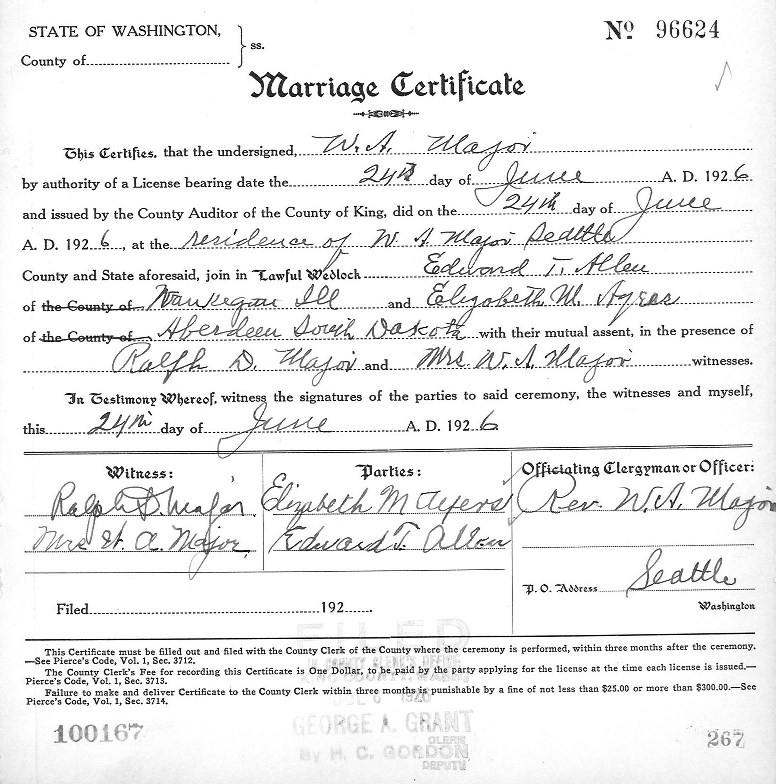 STATE OF WASHINGTON,
County of
ss.
No 96624
Marriage Certificate
This Certifies, that the undersigned, W. A. Major
by authority of a License bearing date the 24th day of June A. D. 1926
and issued by the County Auditor of the County of King, did on the 24th day of June
A. D. 1926, at the residence of W A Major Seattle
County and State aforesaid, join in Lawful Wedlock Edward T. Allen
of the County of Waukegan Ill and Elizabeth M. Ayers
of the County of Aberdeen South Dakota with their mutual assent, in the presence of
Ralph D. Major and Mrs W. A. Major witnesses.
In Testimony Whereof, witness the signatures of the parties to said ceremony, the witnesses and myself,
this 24th day of June A. D. 1926
Witness:
Ralph D. Major
Mrs W. A. Major
Parties:
Elizabeth M Ayers
Edward T. Allen
Officiating Clergyman or Officer:
Rev. W. A. Major
P. O. Address Seattle
Washington
Filed 192
FILED
This Certificate must be filled out and filed with the County Clerk of the County where the ceremony is performed, within three months after the ceremony.
—See Pierce's Code, Vol. 1, Sec. 3712.
The County Clerk's Fee for recording this Certificate is One Dollar, to be paid by the party applying for the license at the time each license is issued.—
Pierce's Code, Vol. 1, Sec. 3713.
Failure to make and deliver Certificate to the County Clerk within three months is punishable by a fine of not less than $25.00 or more than $300.00.—See
Pierce's Code, Vol. 1, Sec. 3714.
GEORGE A. GRANT
CLERK
By H. C. GORDON
DEPUTY
100167
267